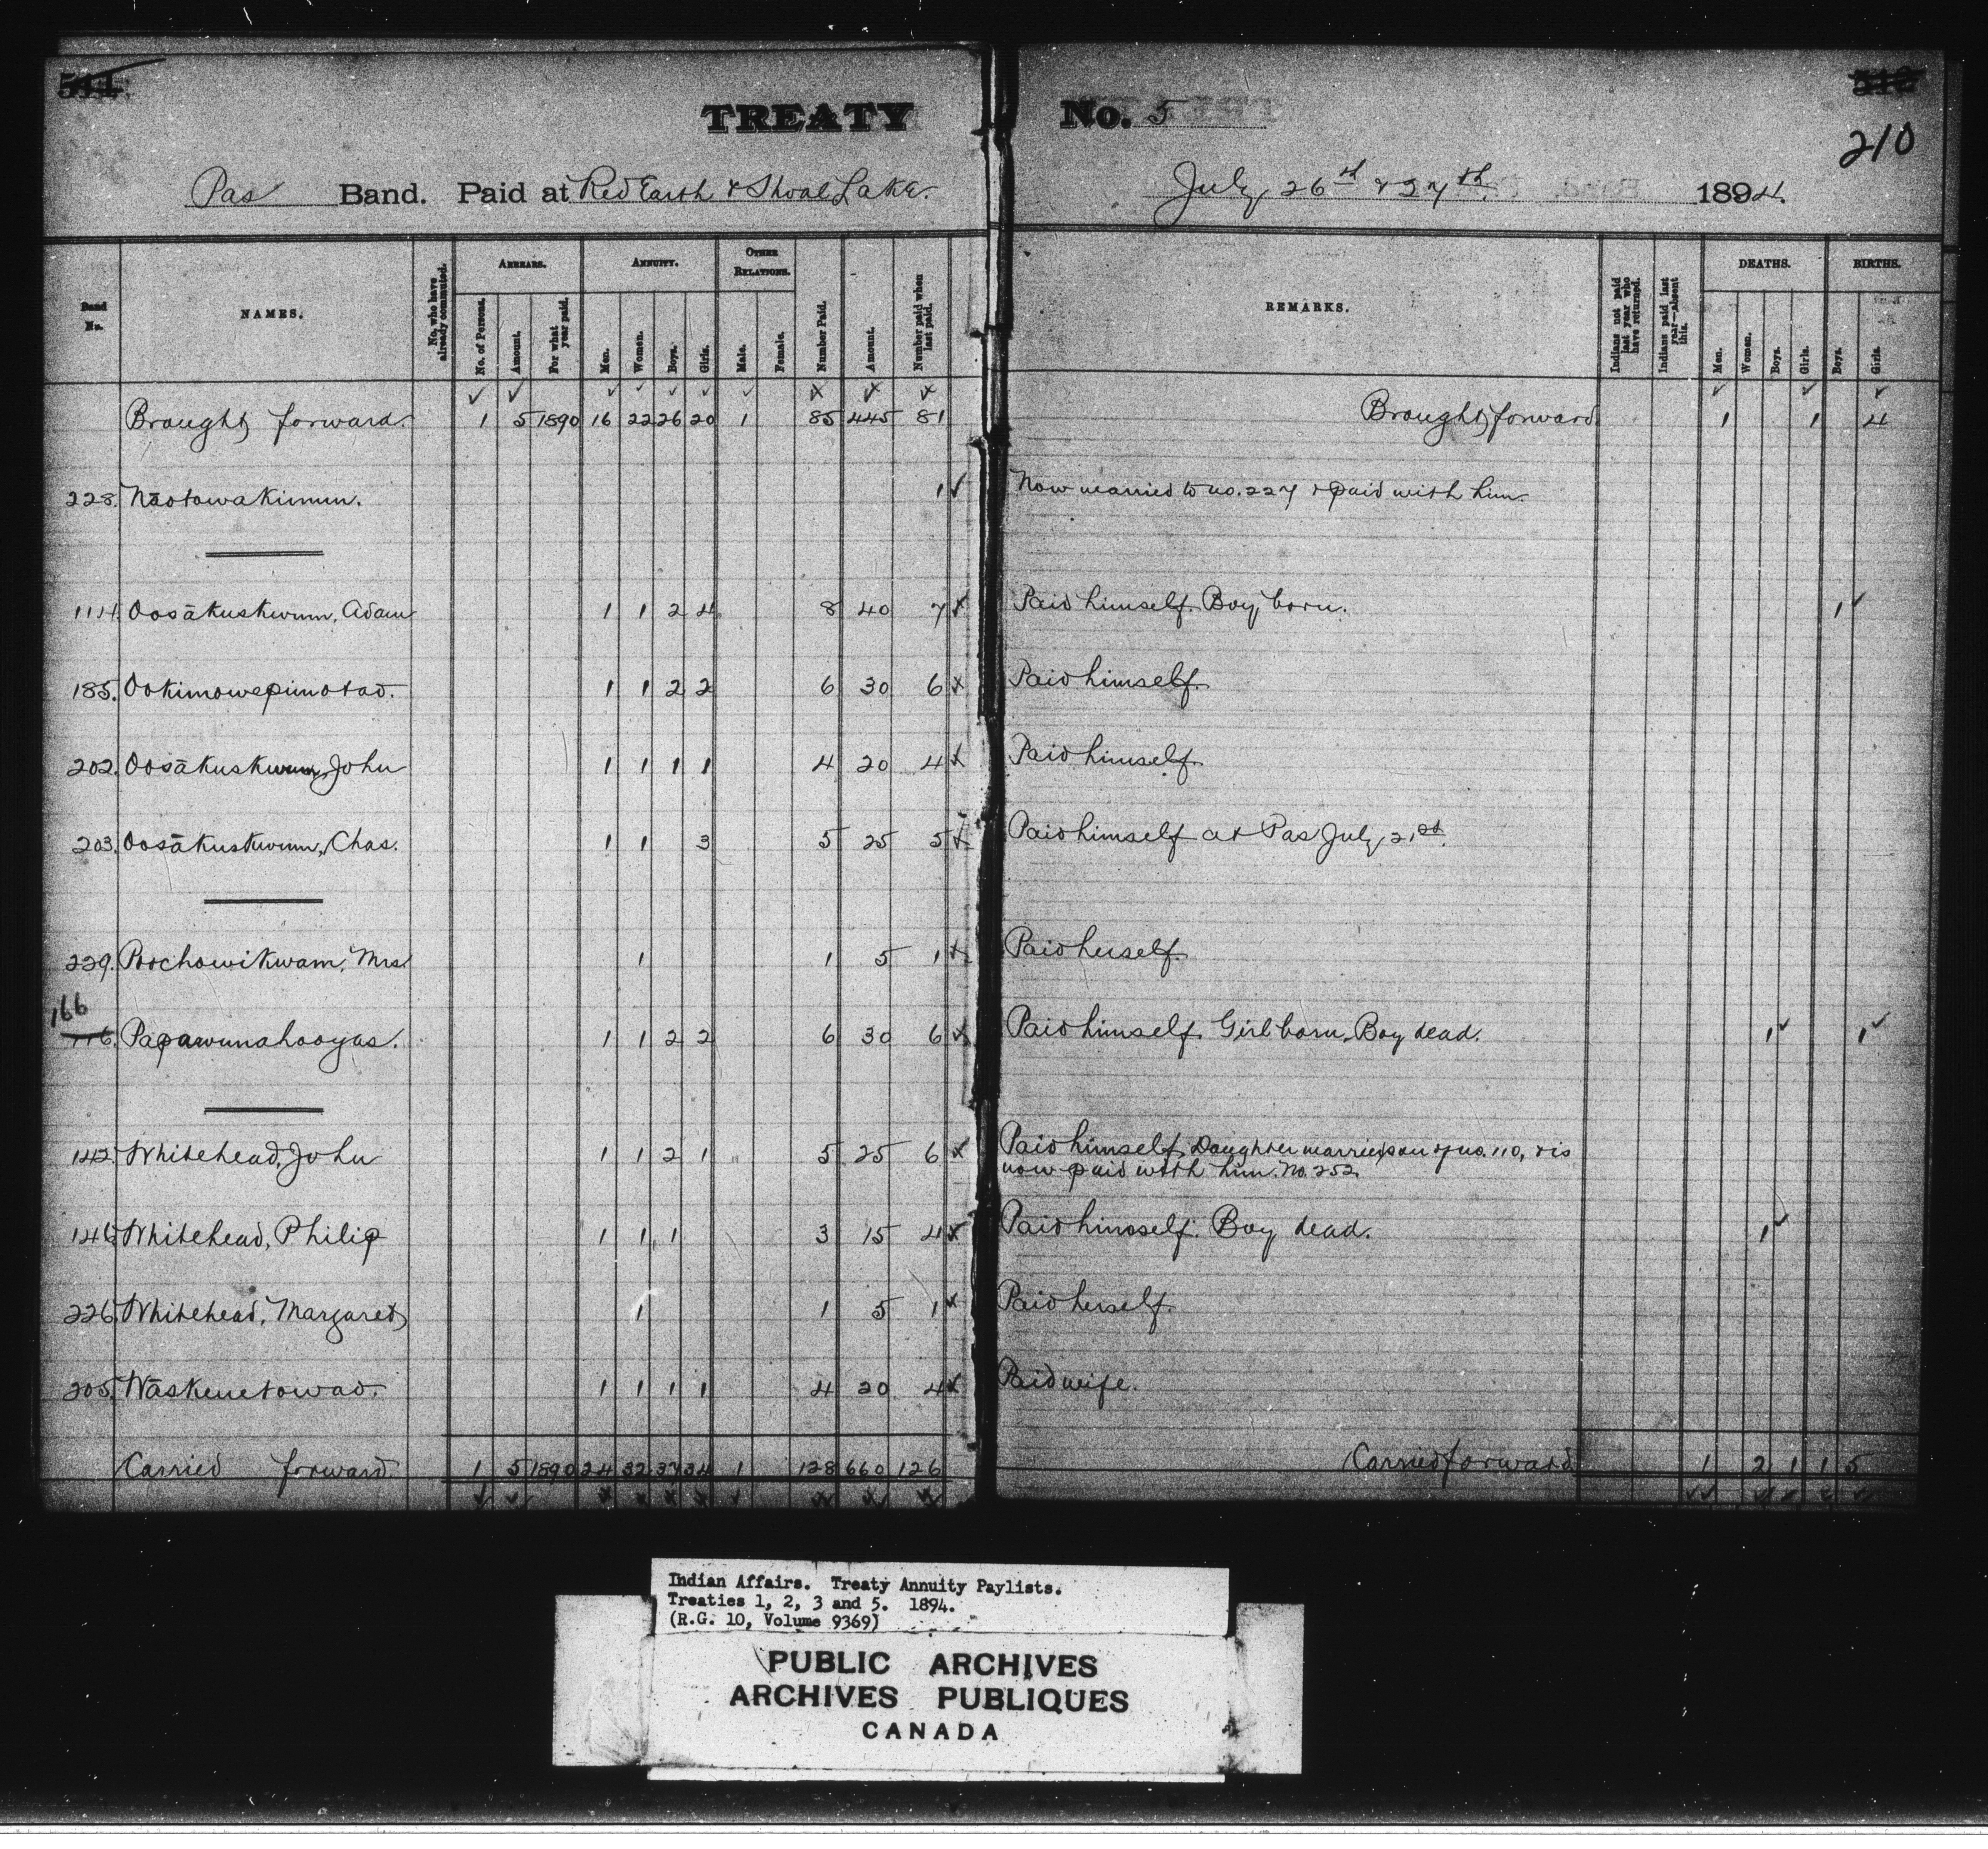 TREATY No. 5
210
Pas Band. Paid at Red Earth & Shoal Lake. July 26th & 27th. 1894.
Band No. NAMES. No. who have already commuted. ARREARS. ANNUITY. OTHER RELATIONS. Number Paid. Amount. Number paid when last paid. REMARKS. Indians not paid last year who have returned. Indians paid last year—absent this. DEATHS. BIRTHS.
No. of Persons. Amount. For what year paid. Men. Women. Boys. Girls. Male. Female. Men. Women. Boys. Girls. Boys. Girls.
Brought forward. 1 5 1890 16 22 26 20 1 85 445 81 Brought forward 1 1 4
228. Nāotowakimum. 1 Now married to no. 227 & paid with him.
114. Oosākuskwum, Adam 1 1 2 4 8 40 7 Paid himself. Boy born. 1
185. Ookimowepimotao. 1 1 2 2 6 30 6 Paid himself.
202. Oosākuskwum, John 1 1 1 1 4 20 4 Paid himself.
203. Oosākuskwum, Chas. 1 1 3 5 25 5 Paid himself at Pas July 21st.
229. Poochowikwam, Mrs. 1 1 5 1 Paid herself.
166
116. Papawunahooyas. 1 1 2 2 6 30 6 Paid himself. Girl born. Boy dead. 1 1
142. Whitehead, John 1 1 2 1 5 25 6 Paid himself. Daughter married son of no. 110, & is
now paid with him. No. 252
146. Whitehead, Philip 1 1 1 3 15 4 Paid himself. Boy dead. 1
226. Whitehead, Margaret 1 1 5 1 Paid herself.
205. Wāskenetowao. 1 1 1 1 4 20 4 Paid wife.
Carried forward. 1 5 1890 24 32 37 34 1 128 660 126 Carried forward 1 2 1 1 5
Indian Affairs. Treaty Annuity Paylists.
Treaties 1, 2, 3 and 5. 1894.
(R.G. 10, Volume 9369)
PUBLIC ARCHIVES
ARCHIVES PUBLIQUES
CANADA